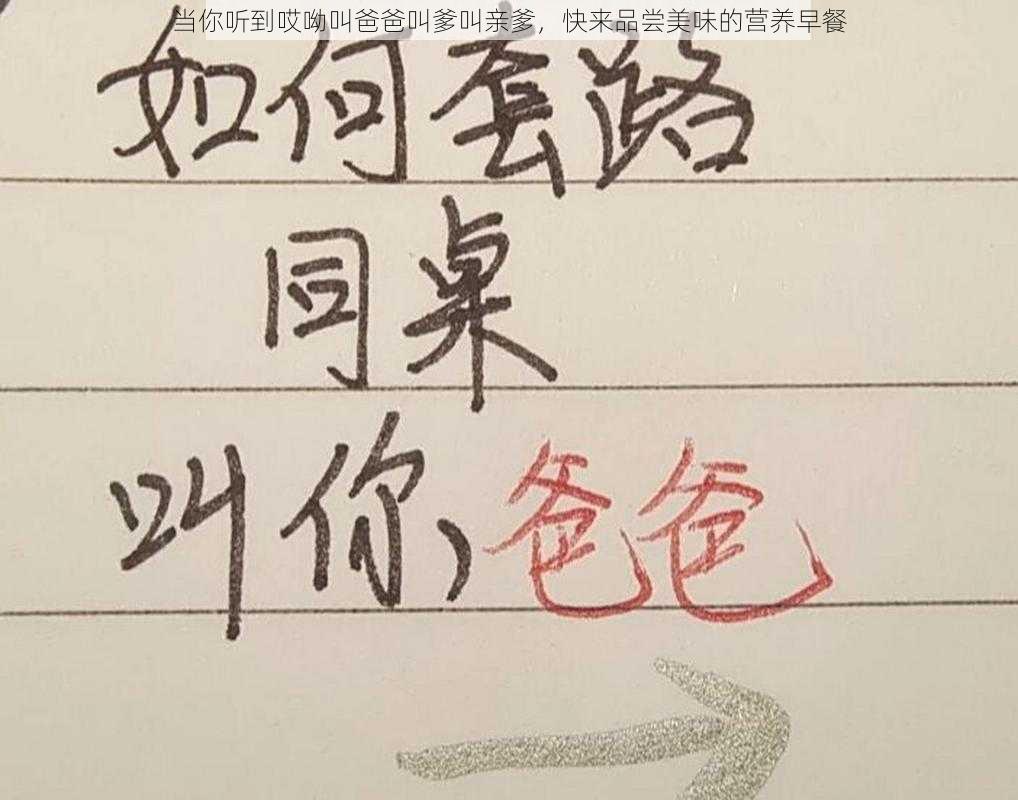 当你听到哎呦叫爸爸叫爹叫亲爹，快来品尝美味的营养早餐
如何套路
同桌
叫你，爸爸